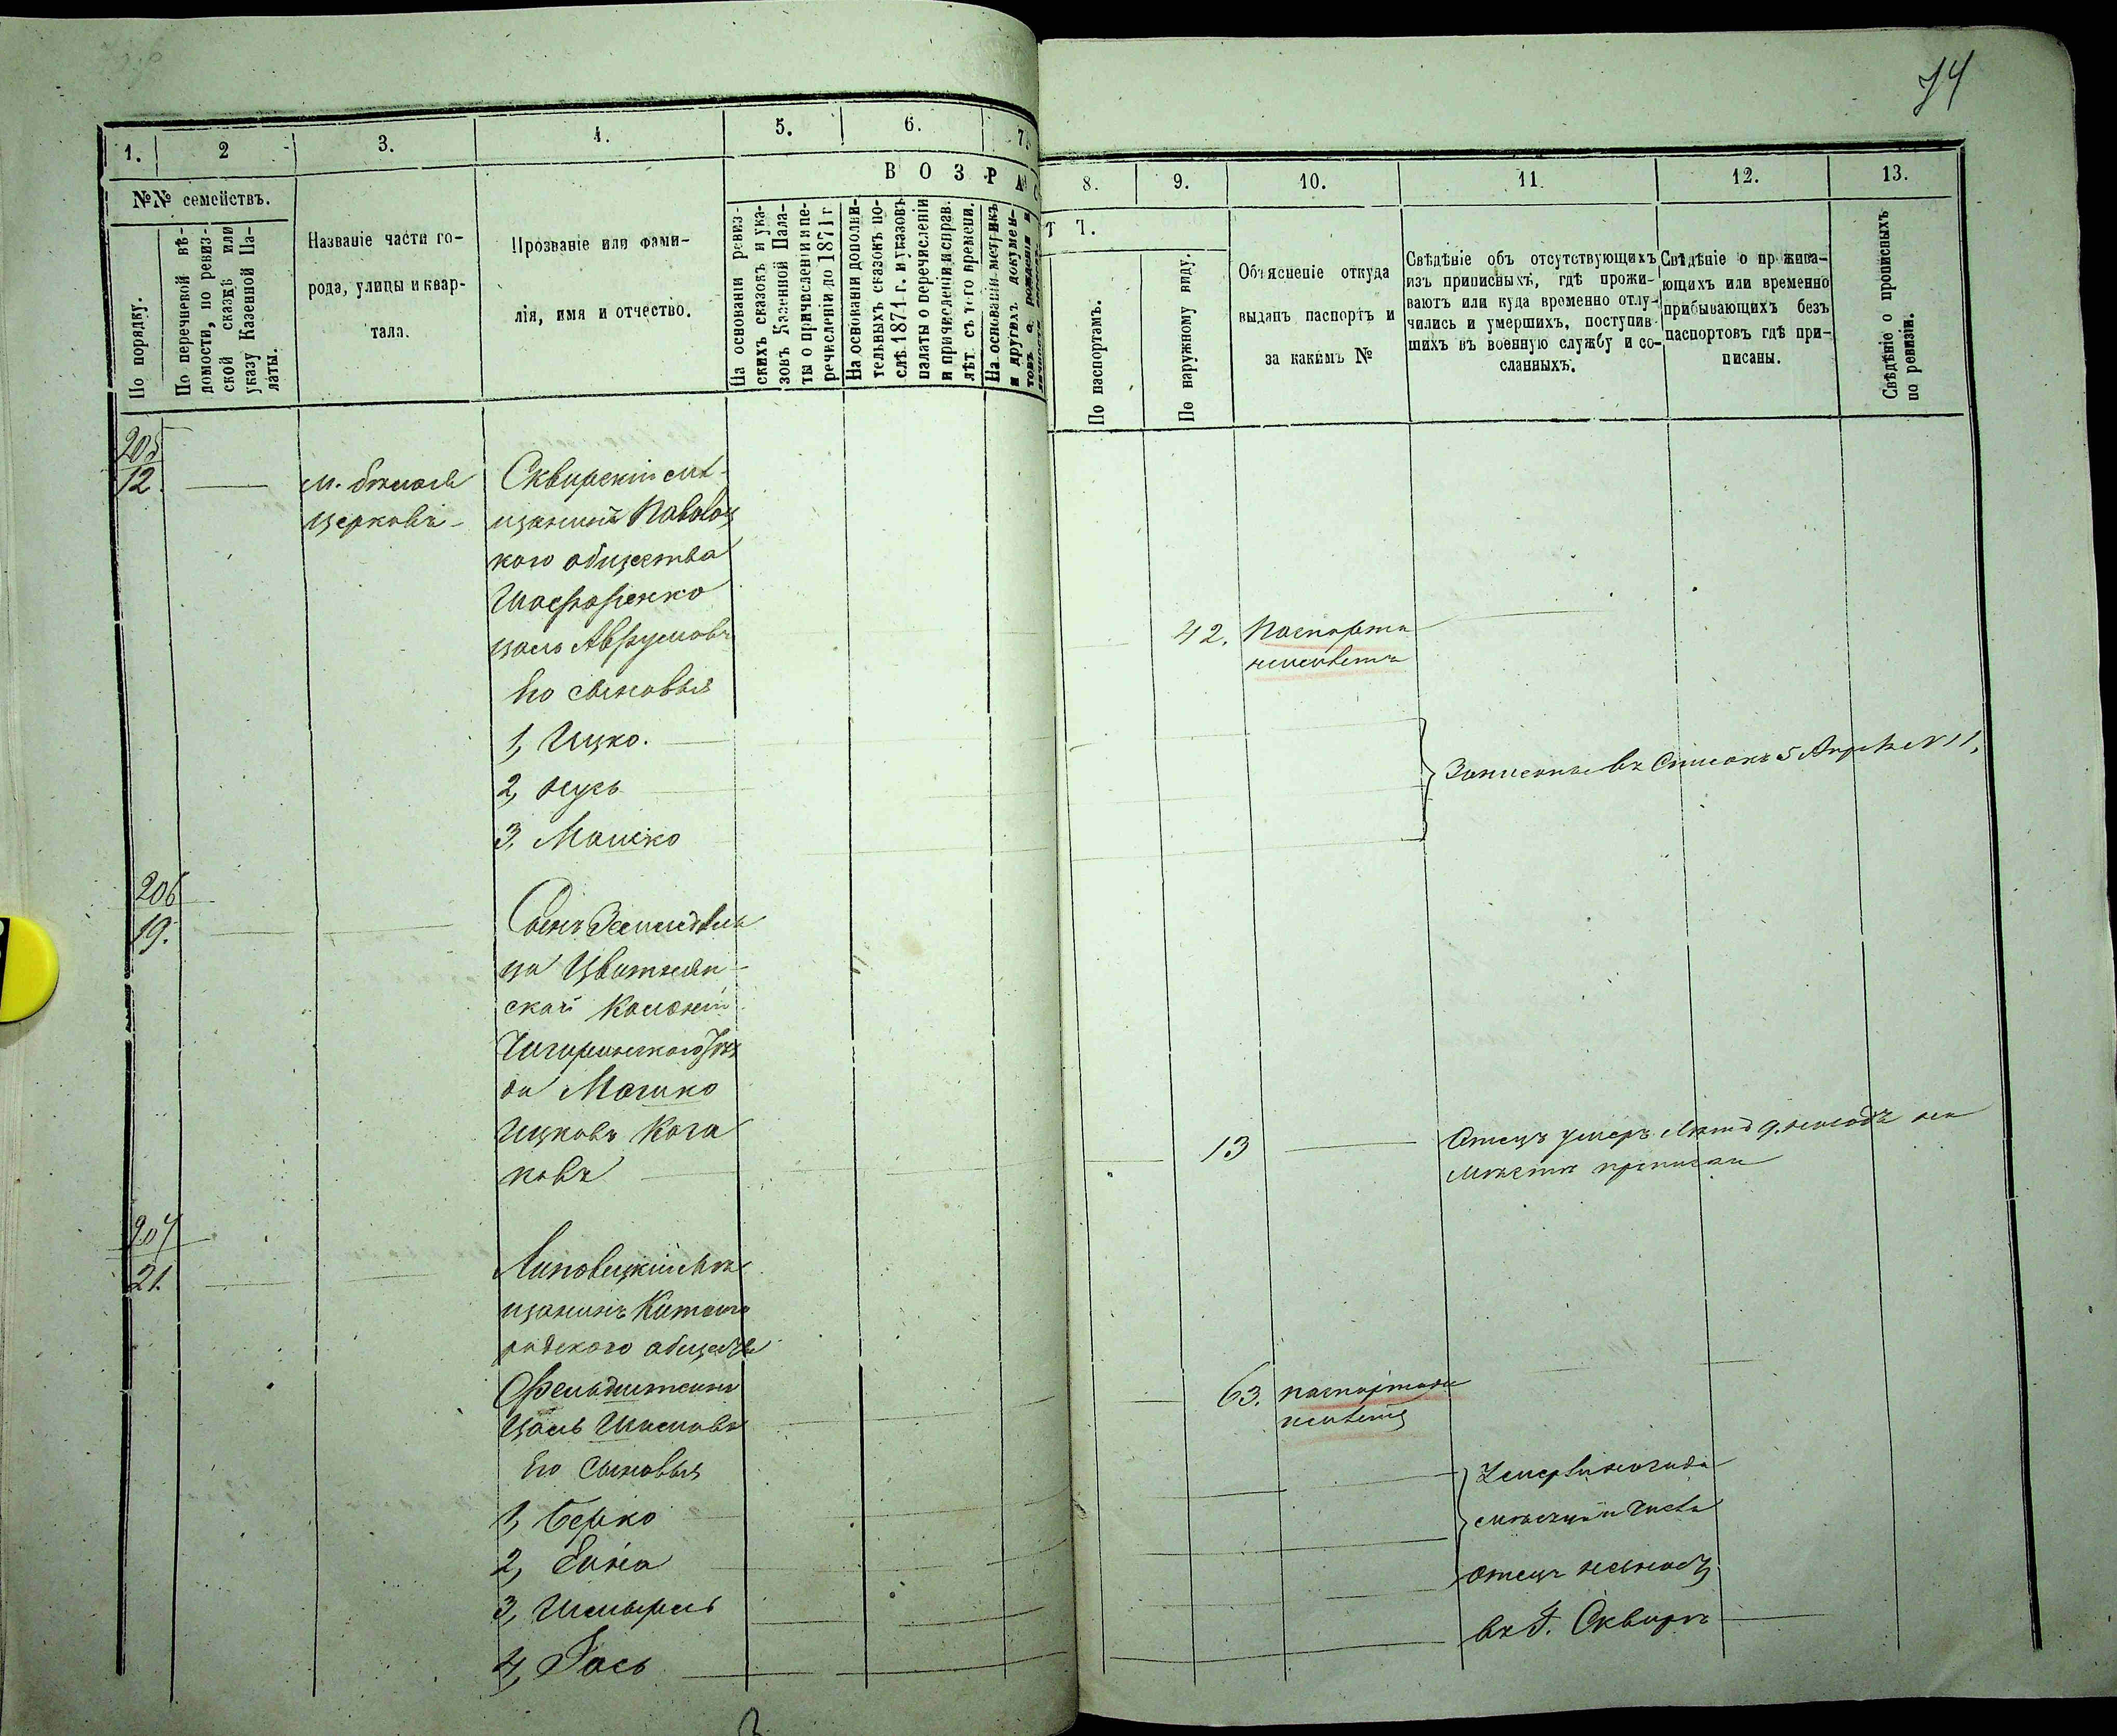 74
1.
2
3.
4.
5.
6.
7.
8.
9.
10.
11.
12.
13.
№№ семействъ.
По порядку.
По перечневой вѣ-
домости, по ревиз-
ской сказкѣ или
указу Казенной Па-
латы.
Названіе части го-
рода, улицы и квар-
тала.
Прозваніе или фами-
лія, имя и отчество.
ВОЗРАСТЪ.
На основаніи ревиз-
скихъ сказокъ и ука-
зовъ Казенной Пала-
ты о причисленіи и пе-
речисленіи до 1871 г.
На основаніи дополни-
тельныхъ сказокъ по-
слѣ 1871 г. и указовъ
палаты о перечисленіи
и причисленіи и справ.
лѣт. съ того времени.
На основаніи метрикъ
и другихъ докумен-
товъ о рожденіи и
По паспортамъ.
По наружному виду.
Объясненіе откуда
выданъ паспортъ и
за какимъ №
Свѣдѣніе объ отсутствующихъ
изъ приписныхъ, гдѣ прожи-
ваютъ или куда временно отлу-
чились и умершихъ, поступив-
шихъ въ военную службу и со-
сланныхъ.
Свѣдѣніе о прожива-
ющихъ или временно
прибывающихъ безъ
паспортовъ гдѣ при-
писаны.
Свѣдѣніе о прописныхъ
по ревизіи.
205
12.
м. Бѣлая
Церковь
Сквирскій мѣ-
щанинъ Паволоц
кого общества
Цаль Аврумовъ
42.
Паспорта
неимѣетъ
Его сыновья
1, Ицко.
2, Нусь
3, Мошко
Записаны въ Списокъ 5 Апр. № 11.
206
19.
Сынъ Земледѣль
ца
ской Колоніи
Чигиринскаго Уѣз
да Мошко
Ицковъ Кога
новъ
13
Отецъ умеръ
207
21.
Липовецкій Мѣ
щанинъ Китайго
родского общества
Фельдштейнъ
Цаль
63.
паспорта не
имѣетъ
Его Сыновья
1, Берко
2, Елья
3, Шмырель
4, Іось
отецъ
въ г. Сквирѣ